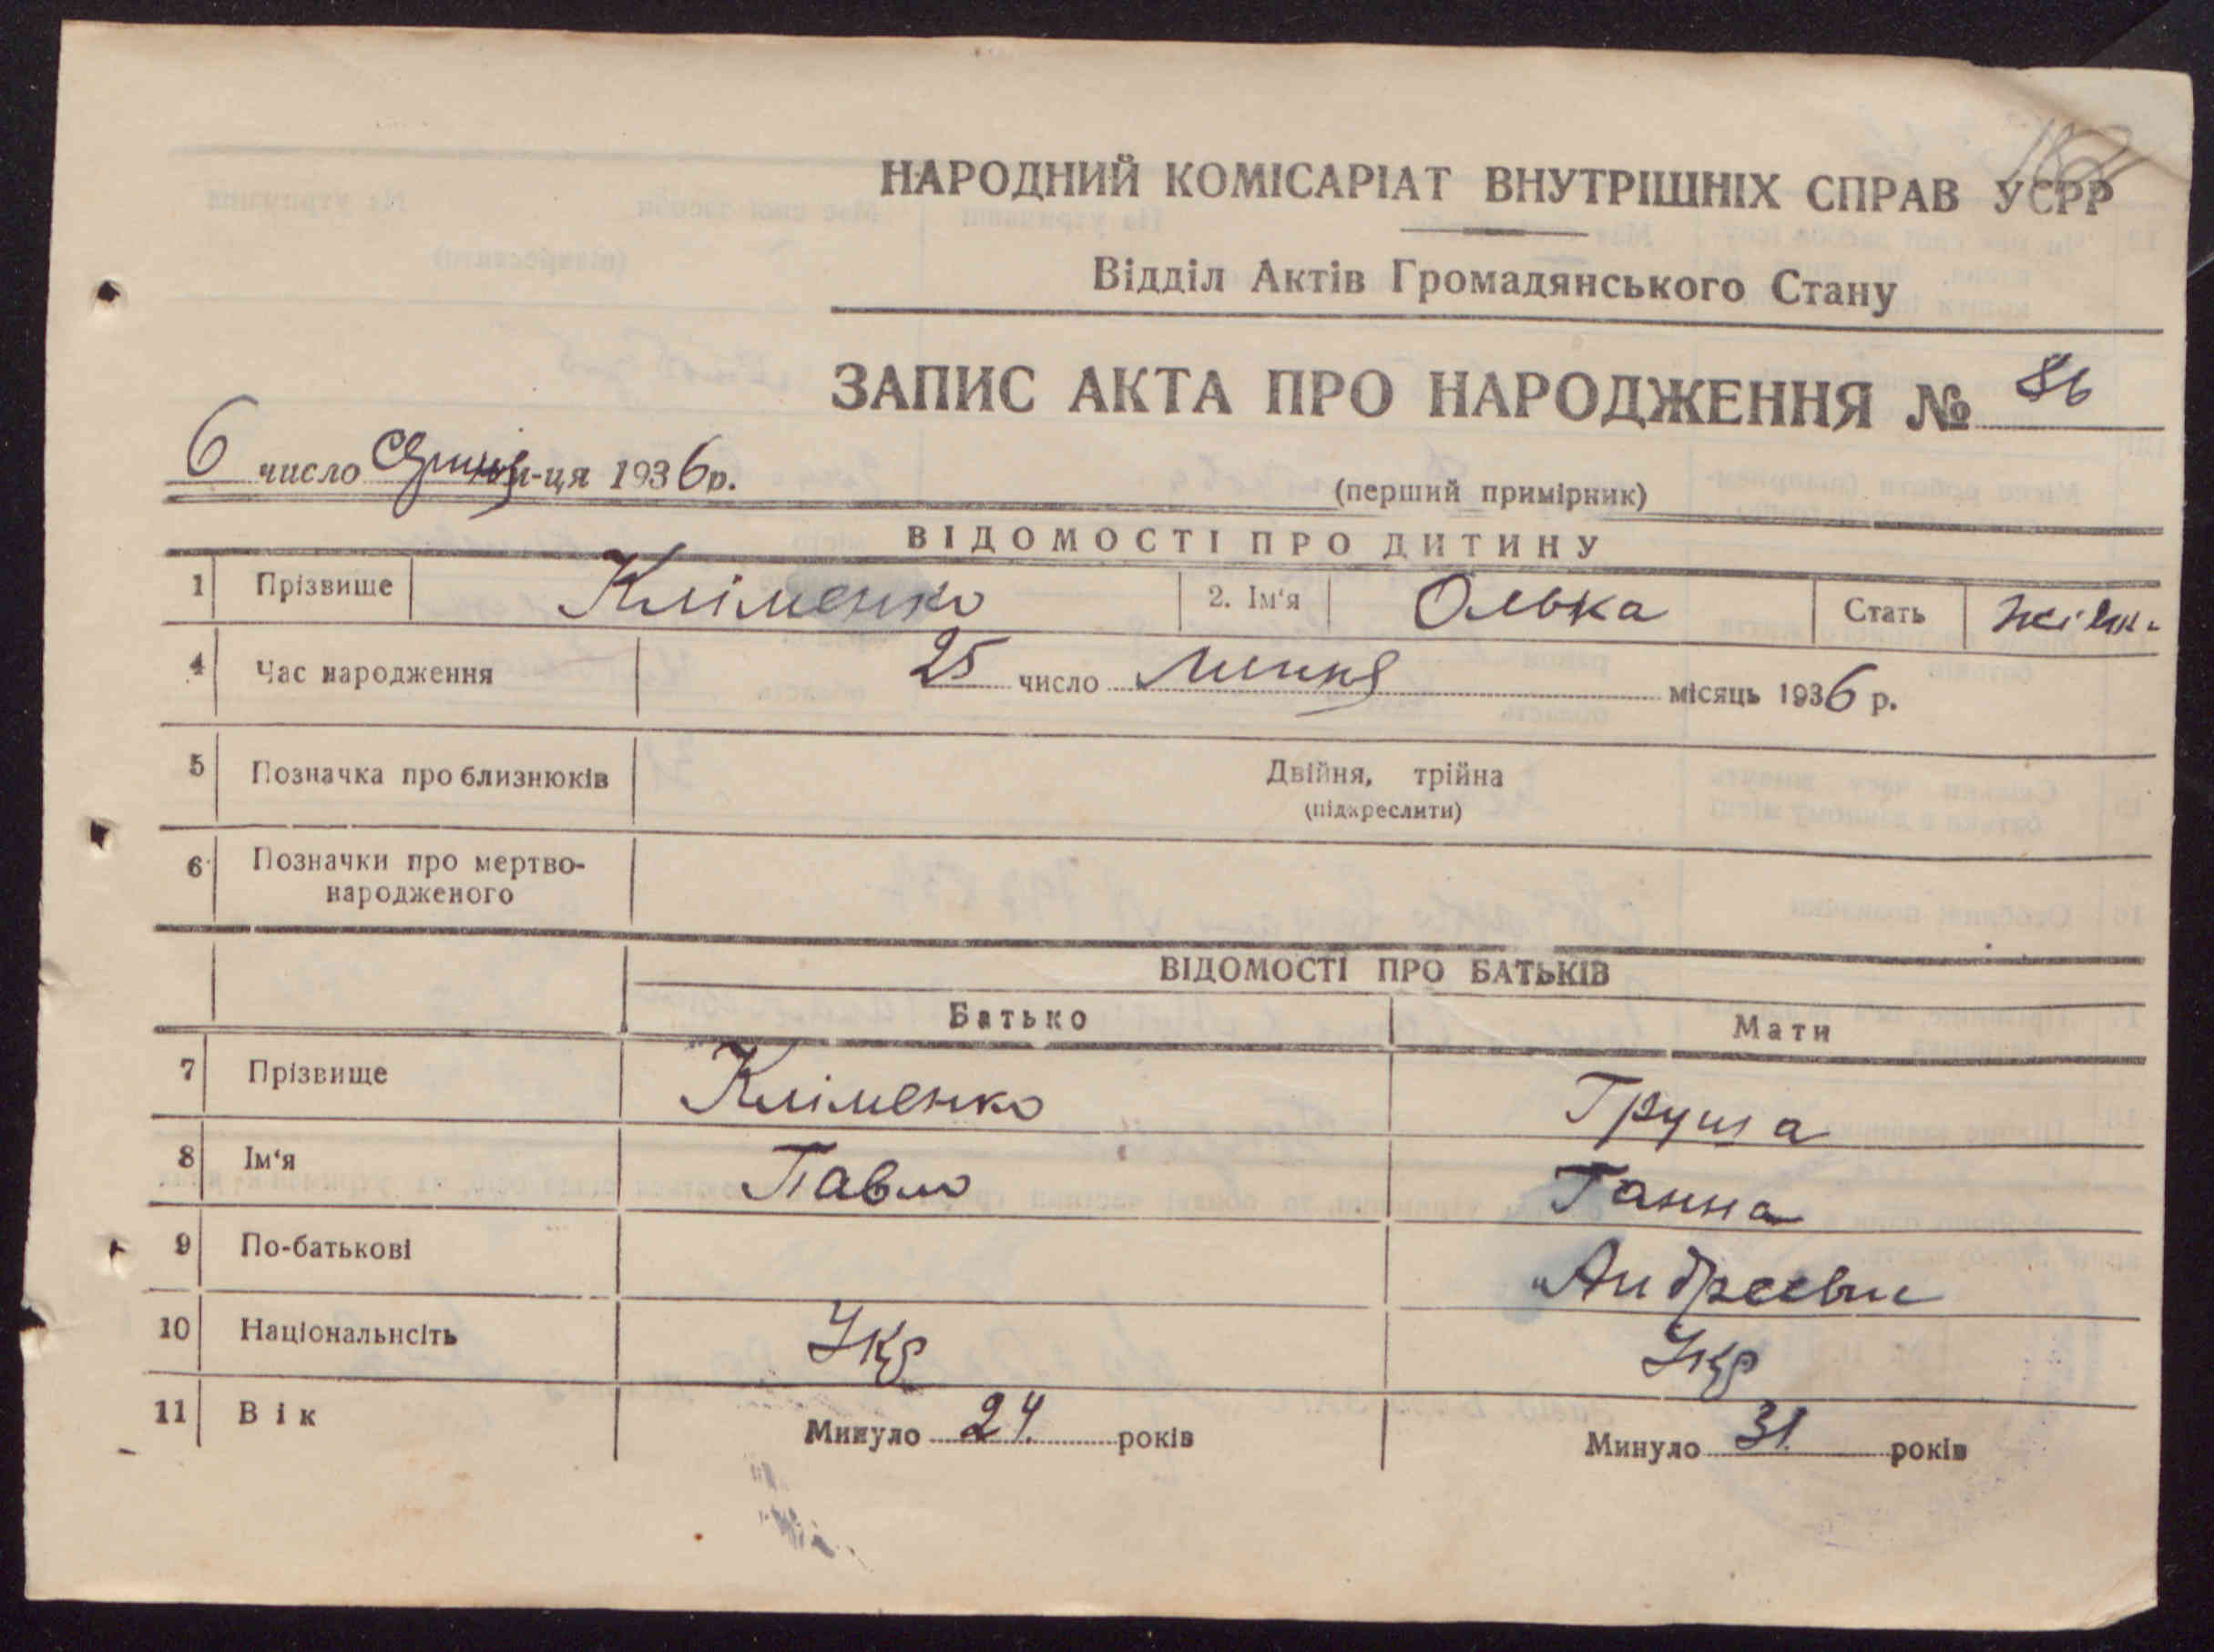 182
НАРОДНИЙ КОМІСАРІАТ ВНУТРІШНІХ СПРАВ УСРР
Відділ Актів Громадянського Стану
ЗАПИС АКТА ПРО НАРОДЖЕННЯ № 86
6 число Серпня м-ця 1936 р.
(перший примірник)
ВІДОМОСТІ ПРО ДИТИНУ
1 Прізвище Кліменко 2. Ім'я Олька Стать жіно.
4 Час народження 25 число Липня місяць 1936 р.
5 Позначка про близнюків Двійня, трійна
(підкреслити)
6 Позначки про мертво-
народженого
ВІДОМОСТІ ПРО БАТЬКІВ
Батько Мати
7 Прізвище Кліменко Груша
8 Ім'я Павло Ганна
9 По-батькові Андреевн
10 Національнсіть Укр Укр
11 Вік Минуло 24 років Минуло 31 років